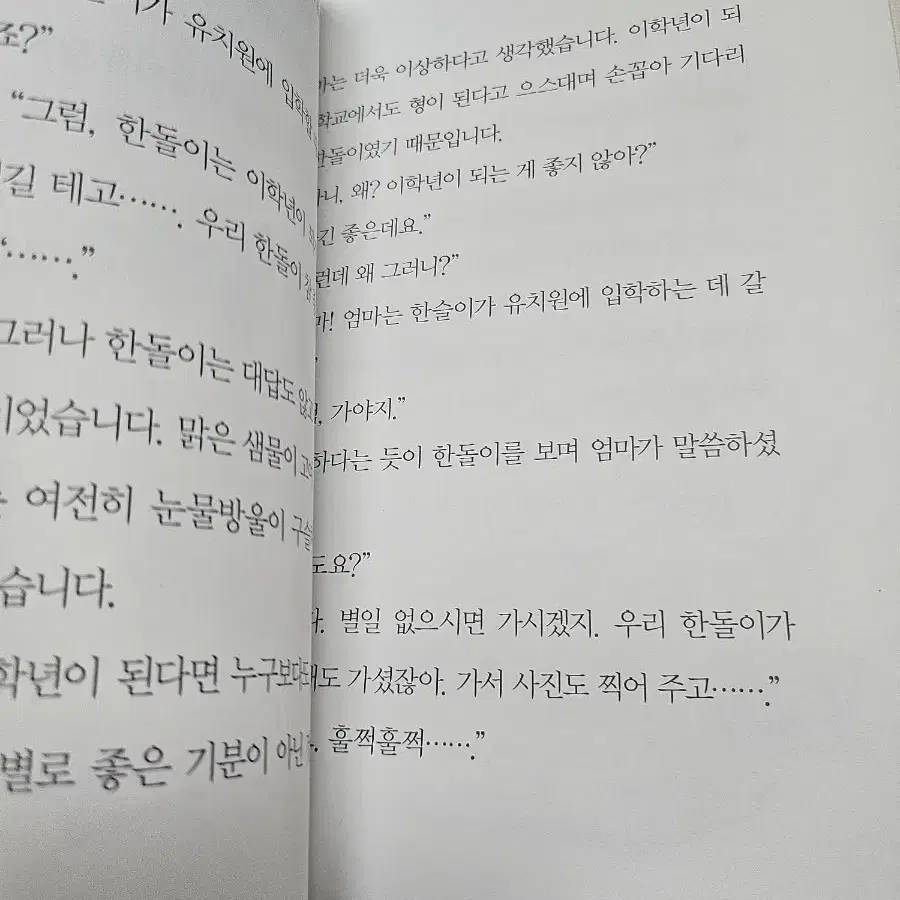 유치원에
죠?”
“그럼, 한돌이는 이학년이
길 테고……. 우리 한돌이
“…….”
그러나 한돌이는 대답도
이었습니다. 맑은 샘물이
여전히 눈물방울이
습니다.
학년이 된다면 누구보다
별로 좋은 기분이
더욱 이상하다고 생각했습니다. 이학년이 되
학교에서도 형이 된다고 으스대며 손꼽아 기다리
한돌이였기 때문입니다.
왜? 이학년이 되는 게 좋지 않아?”
좋은데요.”
왜 그러니?”
엄마는 한슬이가 유치원에 입학하는 데 갈
가야지.”
하다는 듯이 한돌이를 보며 엄마가 말씀하셨
도요?”
별일 없으시면 가시겠지. 우리 한돌이가
때도 가셨잖아. 가서 사진도 찍어 주고…….”
훌쩍훌쩍…….”